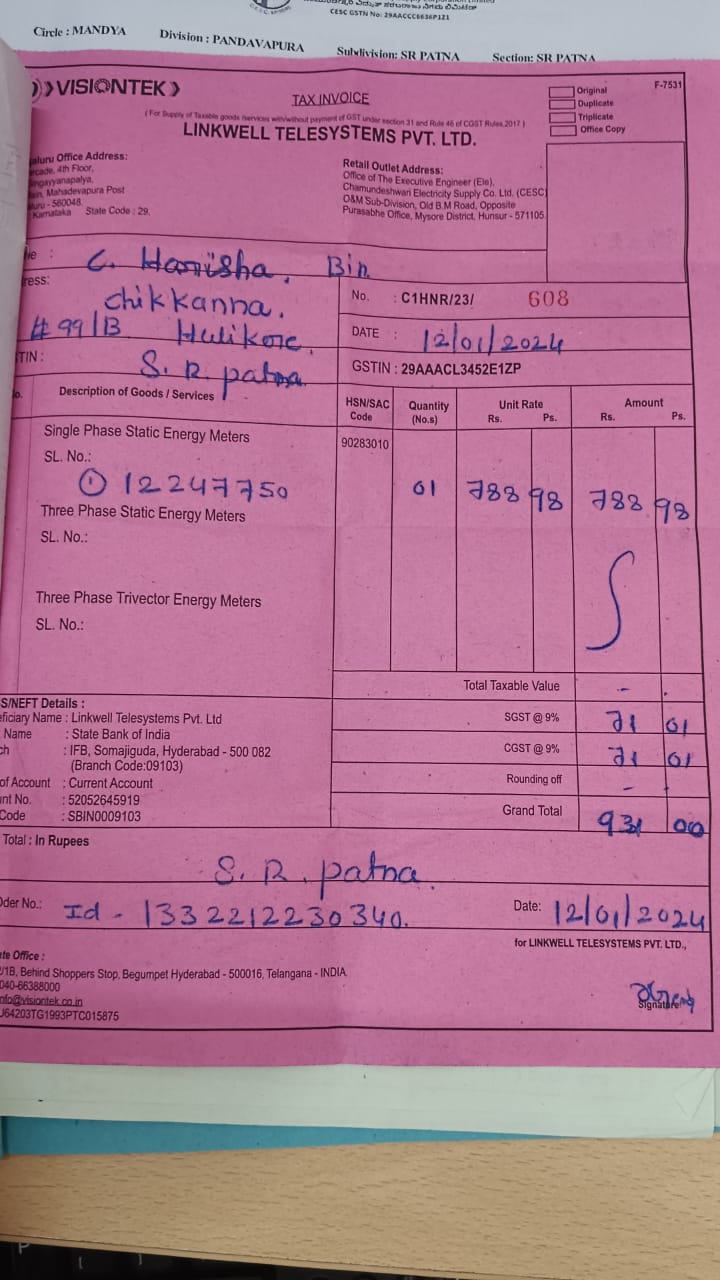 CESC GSTN No: 29AACCC6636P1Z1
Circle : MANDYA Division : PANDAVAPURA Subdivision: SR PATNA Section: SR PATNA
VISIONTEK
TAX INVOICE
Original
F-7531
Duplicate
Triplicate
Office Copy
( For Supply of Taxable goods /services with/without payment of GST under section 31 and Rule 46 of CGST Rules,2017 )
LINKWELL TELESYSTEMS PVT. LTD.
aluru Office Address:
rcade, 4th Floor,
ngayyanapalya,
Mahadevapura Post
uru - 560048.
Karnataka State Code : 29.
Retail Outlet Address:
Office of The Executive Engineer (Ele),
Chamundeshwari Electricity Supply Co. Ltd. (CESC)
O&M Sub-Division, Old B.M Road, Opposite
Purasabhe Office, Mysore District, Hunsur - 571105.
C. Harisha. Bin
ress: chikkanna.
# 99/B Hulikere.
S. R. patna
No. : C1HNR/23/ 608
DATE : 12/01/2024
TIN :
GSTIN : 29AAACL3452E1ZP
o. Description of Goods / Services HSN/SAC Code Quantity (No.s) Unit Rate Rs. Ps. Amount Rs. Ps.
Single Phase Static Energy Meters 90283010
SL. No.:
① 12247750 01 788 98 788 98
Three Phase Static Energy Meters
SL. No.:
Three Phase Trivector Energy Meters
SL. No.:
Total Taxable Value - .
S/NEFT Details :
eficiary Name : Linkwell Telesystems Pvt. Ltd
SGST @ 9% 71 01
Name : State Bank of India
ch : IFB, Somajiguda, Hyderabad - 500 082
CGST @ 9% 71 01
(Branch Code:09103)
of Account : Current Account
Rounding off -
nt No. : 52052645919
Code : SBIN0009103
Grand Total 931 00
Total : In Rupees
S. R. patna.
der No.: Id - 1332212230340.
Date: 12/01/2024
for LINKWELL TELESYSTEMS PVT. LTD.,
te Office :
/1B, Behind Shoppers Stop, Begumpet Hyderabad - 500016, Telangana - INDIA
040-66388000
nfo@visiontek.co.in
U64203TG1993PTC015875
Signature